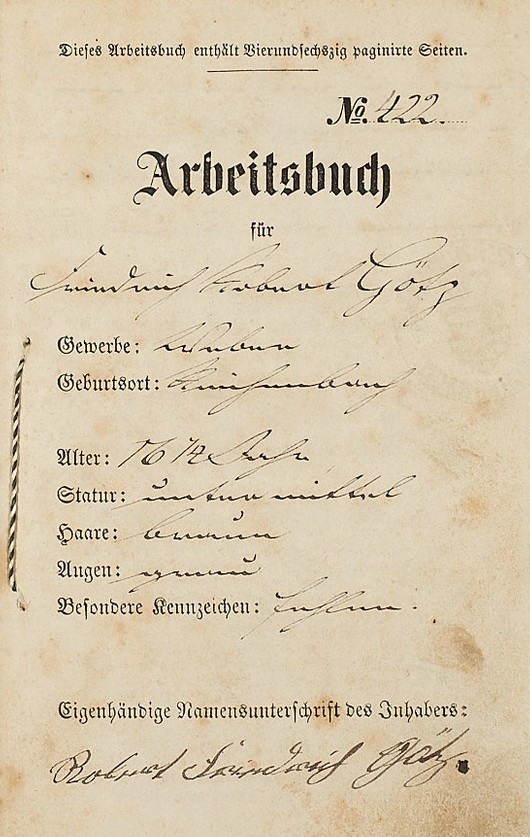 Dieses Arbeitsbuch enthält Vierundsechszig paginirte Seiten.
No. 422.
Arbeitsbuch
für
Friedrich Robert Götz
Gewerbe: Weber
Geburtsort: Reichenbach
Alter: 16 1/4 Jahr
Statur: unter mittel
Haare: braun
Augen: grau
Besondere Kennzeichen: fehlen.
Eigenhändige Namensunterschrift des Inhabers:
Robert Friedrich Götz.